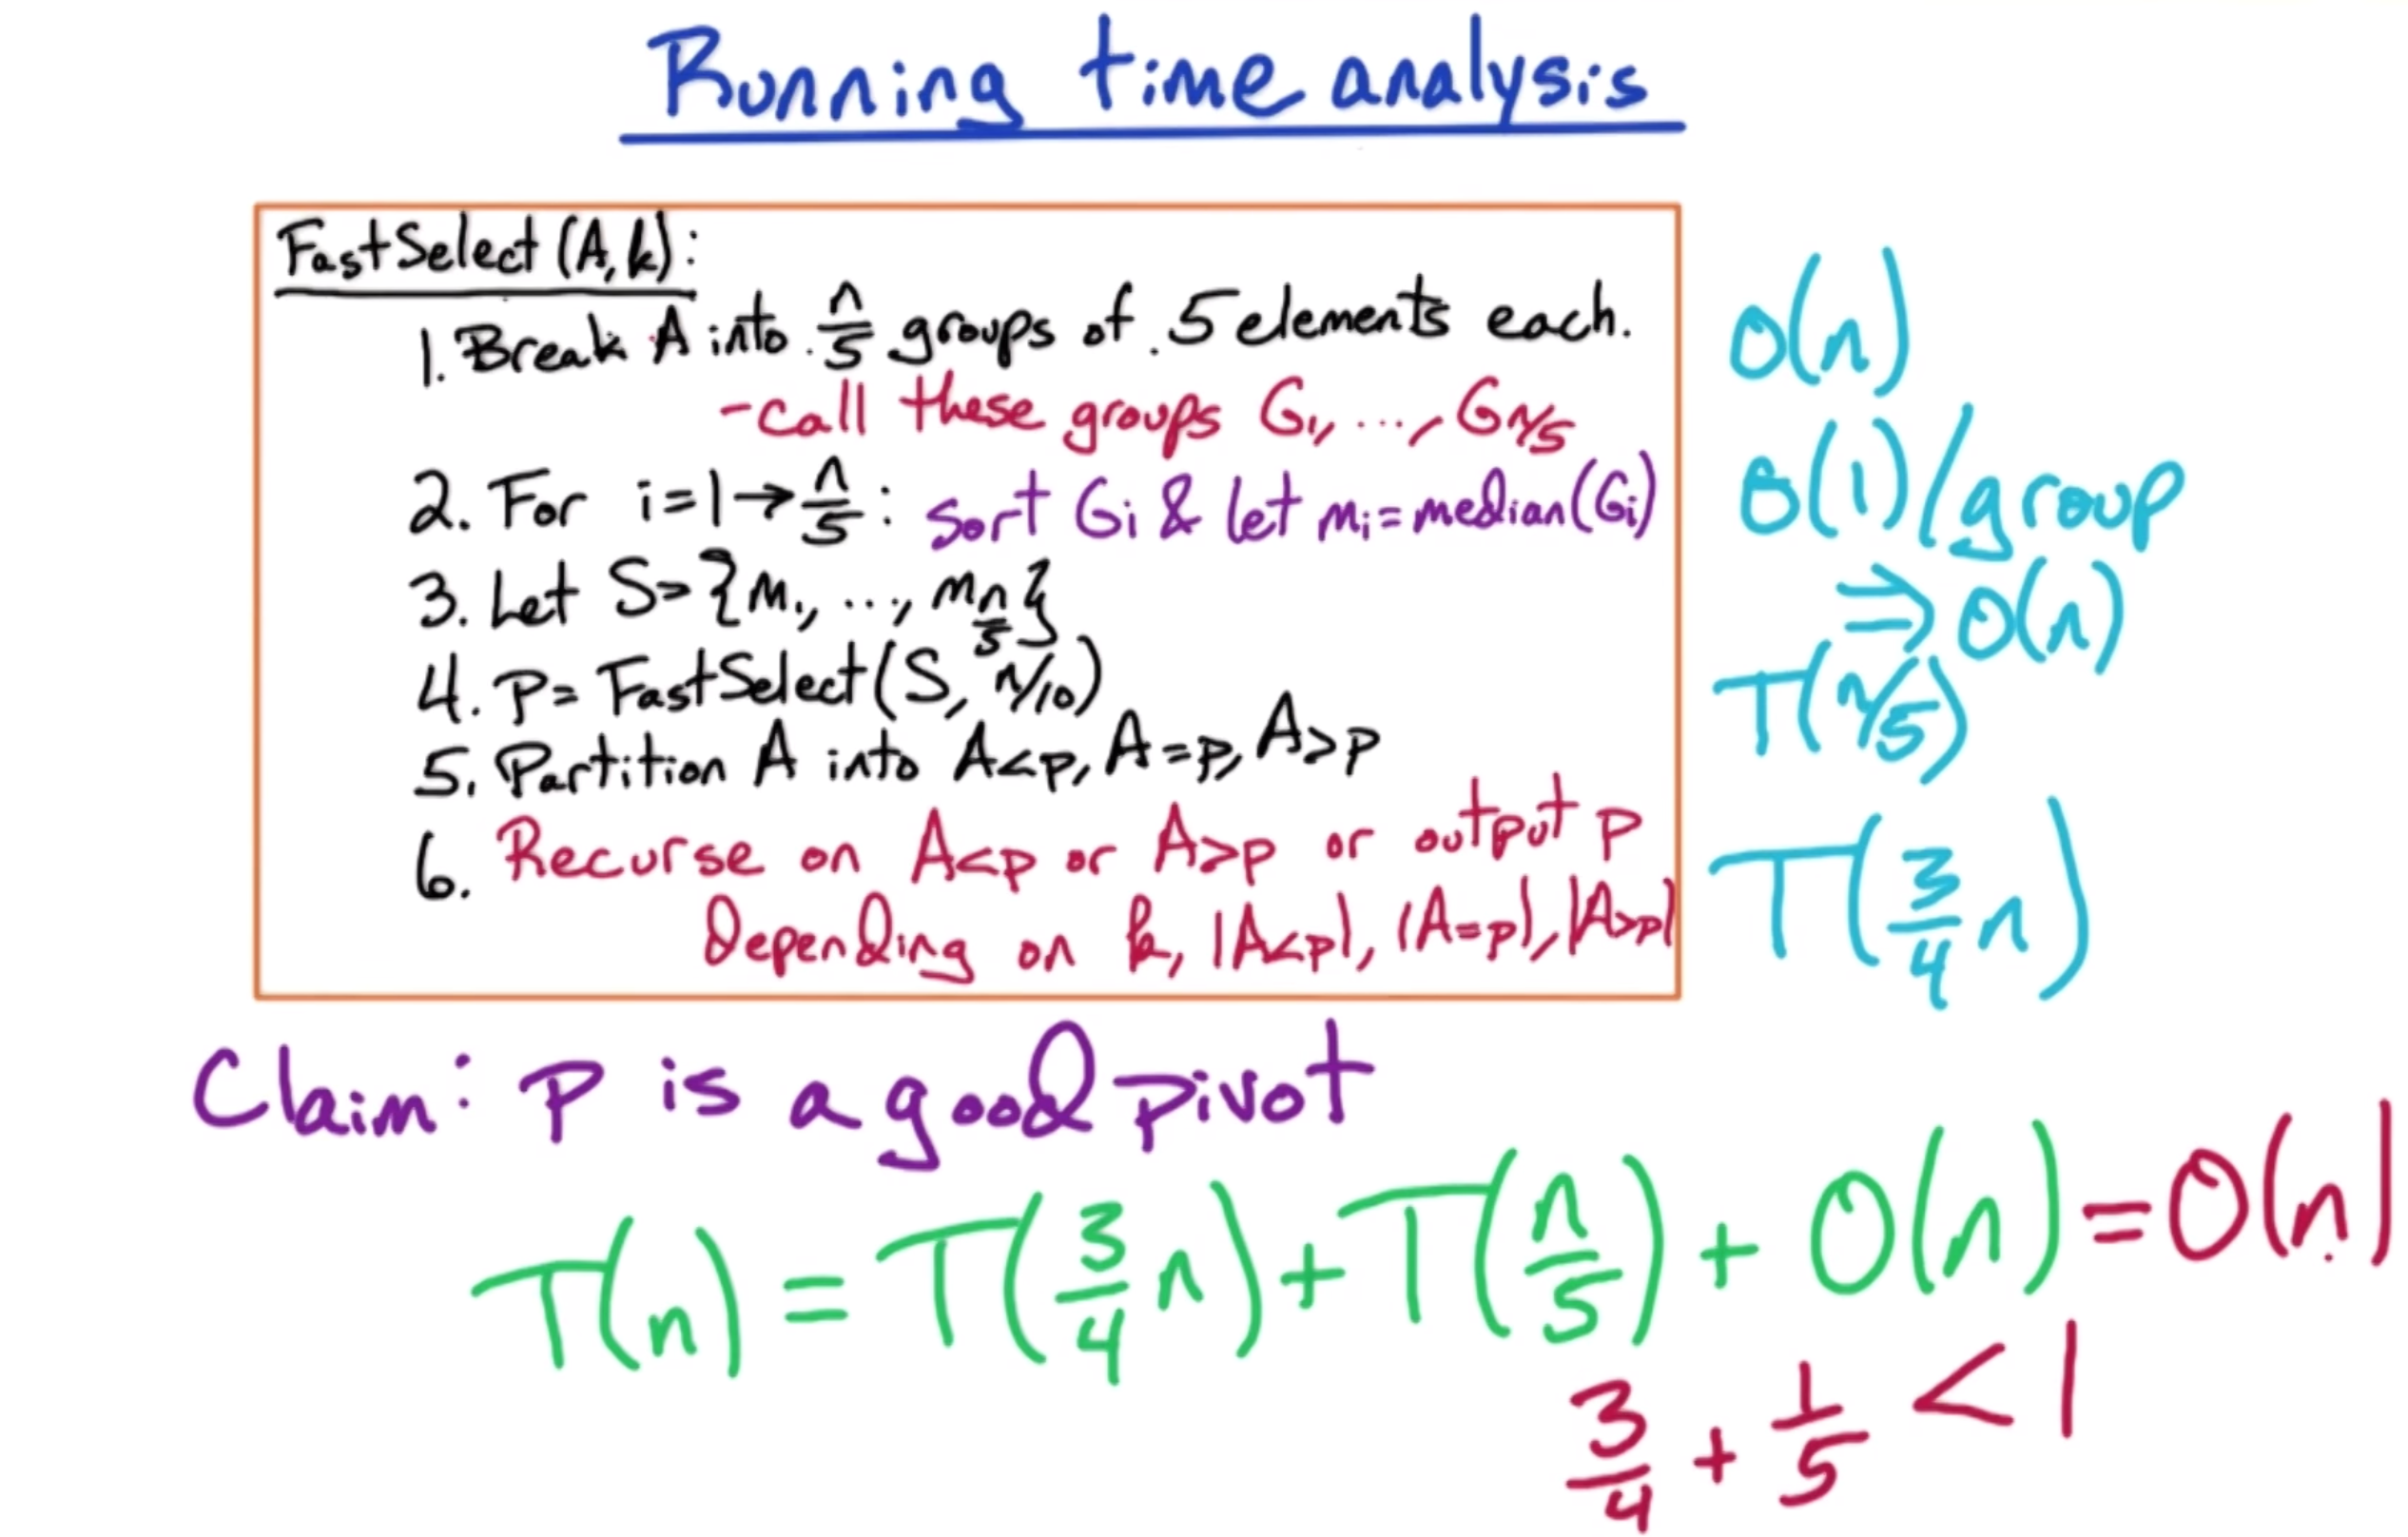 Running time analysis
FastSelect(A,k):
1. Break A into n/5 groups of 5 elements each.
O(n)
- call these groups G₁, ..., G_{n/5}
2. For i=1→n/5: sort Gᵢ & let mᵢ=median(Gᵢ)
O(1)/group
3. Let S={m₁, ..., m_{n/5}}
⇒ O(n)
4. p = FastSelect(S, n/10)
T(n/5)
5. Partition A into A<p, A=p, A>p
6. Recurse on A<p or A>p or output p
Depending on k, |A<p|, |A=p|, |A>p|
T(3/4 n)
Claim: p is a good pivot
T(n) = T(3/4 n) + T(n/5) + O(n) = O(n)
3/4 + 1/5 < 1